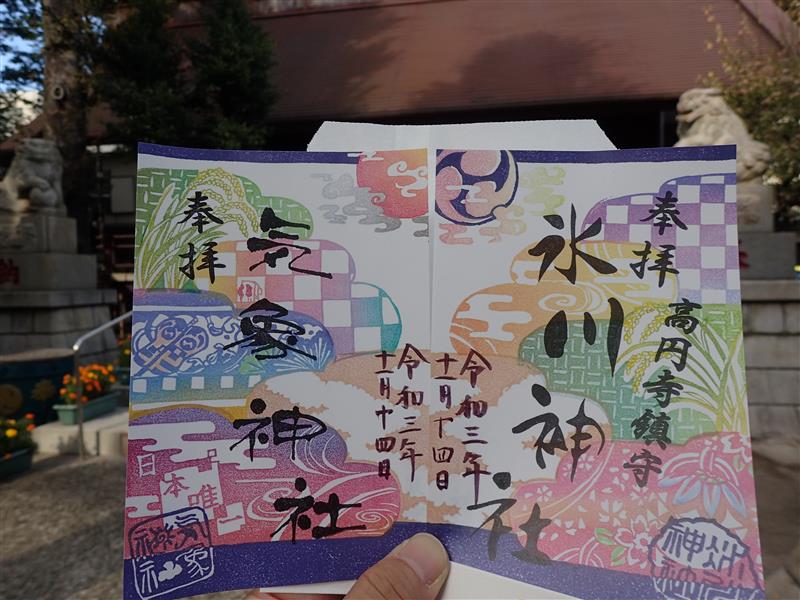 奉拝
高円寺鎮守
氷川神社
令和三年
十一月十四日
奉拝
気象神社
令和三年
十一月十四日
日本唯一